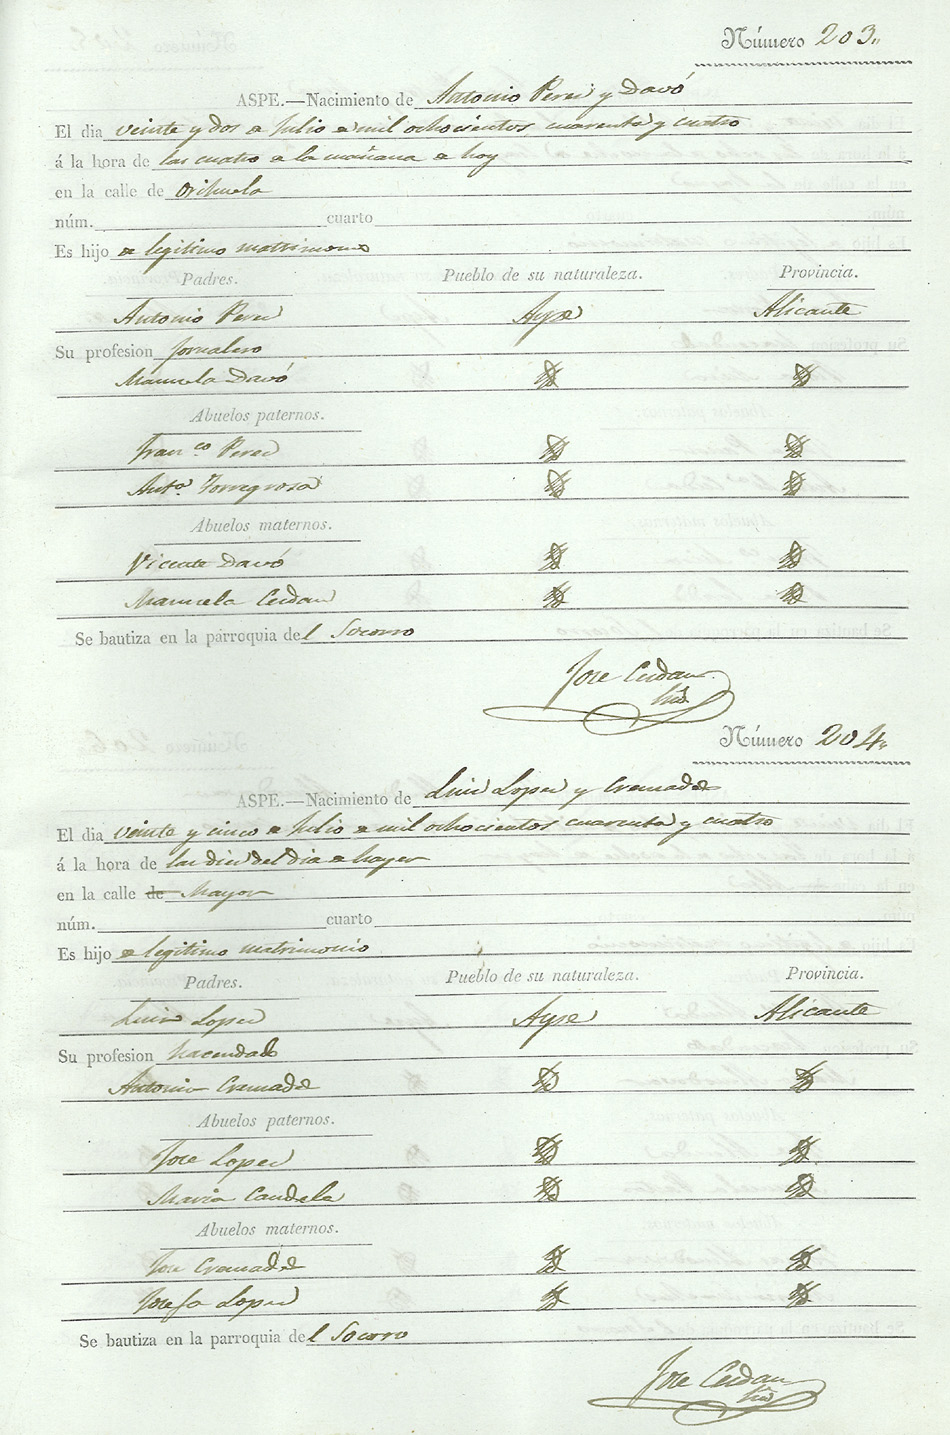 Número 203
ASPE.—Nacimiento de Antonio Perez y Davó
El dia veinte y dos de Julio de mil ochocientos cuarenta y cuatro
á la hora de las cuatro de la mañana de hoy
en la calle de Orihuela
núm. cuarto
Es hijo de legitimo matrimonio
Padres. Pueblo de su naturaleza. Provincia.
Antonio Perez Aspe Alicante
Su profesion Jornalero
Manuela Davó
Abuelos paternos.
Fran.co Perez
Ant.a Torregrosa
Abuelos maternos.
Vicente Davó
Manuela Cerdan
Se bautiza en la parroquia del Socorro
Jose Cerdan
Número 204
ASPE.—Nacimiento de Luis Lopez y Cremades
El dia veinte y cinco de Julio de mil ochocientos cuarenta y cuatro
á la hora de las diez del dia de hayer
en la calle de Mayor
núm. cuarto
Es hijo de legitimo matrimonio
Padres. Pueblo de su naturaleza. Provincia.
Luis Lopez Aspe Alicante
Su profesion hacendado
Antonia Cremades
Abuelos paternos.
Jose Lopez
Maria Candela
Abuelos maternos.
Jose Cremades
Josefa Lopez
Se bautiza en la parroquia del Socorro
Jose Cerdan